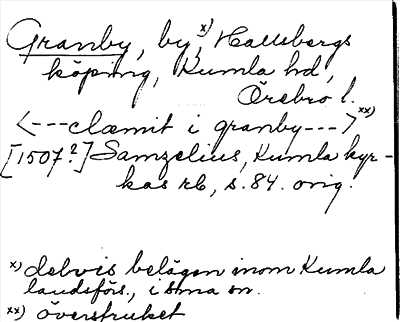 Granby, by,x) Hallsbergs
köping, Kumla hd,
Örebro l.
<---clæmit i granby--->xx)
[1507?] Samzelius, Kumla kyr-
kas rb, s. 84. orig.
x) delvis belägen inom Kumla
landsförs., i sma sn.
xx) överstruket